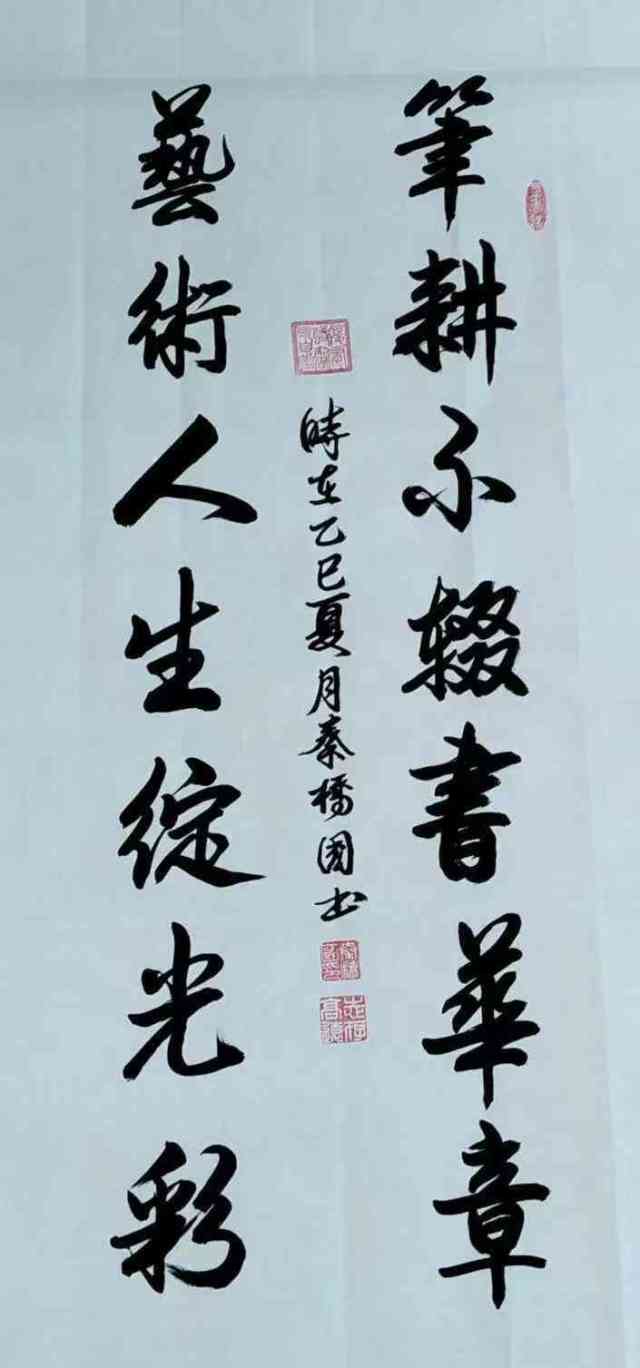 筆耕不輟書華章
藝術人生綻光彩
時在乙巳夏月秦橋國书